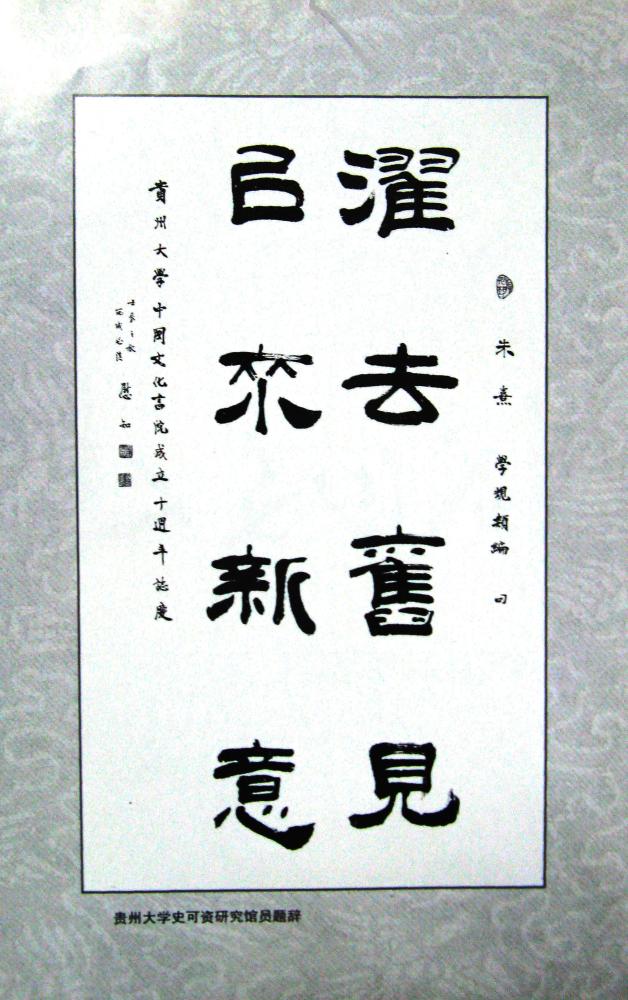 朱熹 學規類編 句
濯去舊見
㠯來新意
貴州大學中國文化書院成立十週年誌慶
壬辰之秋
贵州大学史可资研究馆员题辞